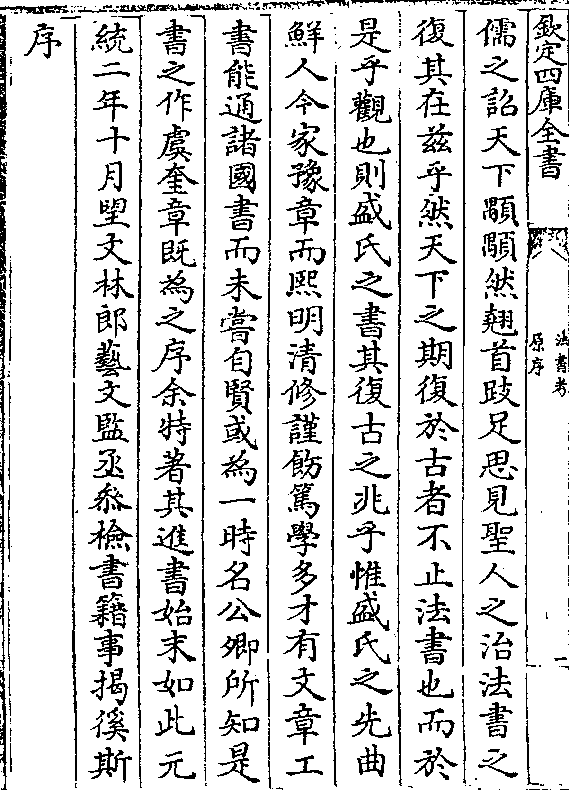 欽定四庫全書
法書考
原序
一
儒之詔天下顒顒然翹首跂足思見聖人之治法書之
復其在茲乎然天下之期復於古者不止法書也而於
是乎觀也則盛氏之書其復古之兆乎惟盛氏之先曲
鮮人今家豫章而熙明清修謹飭篤學多才有文章工
書能通諸國書而未嘗自賢或為一時名公卿所知是
書之作虞奎章既為之序余特著其進書始末如此元
統二年十月朢文林郎藝文監丞叅檢書籍事揭徯斯
序